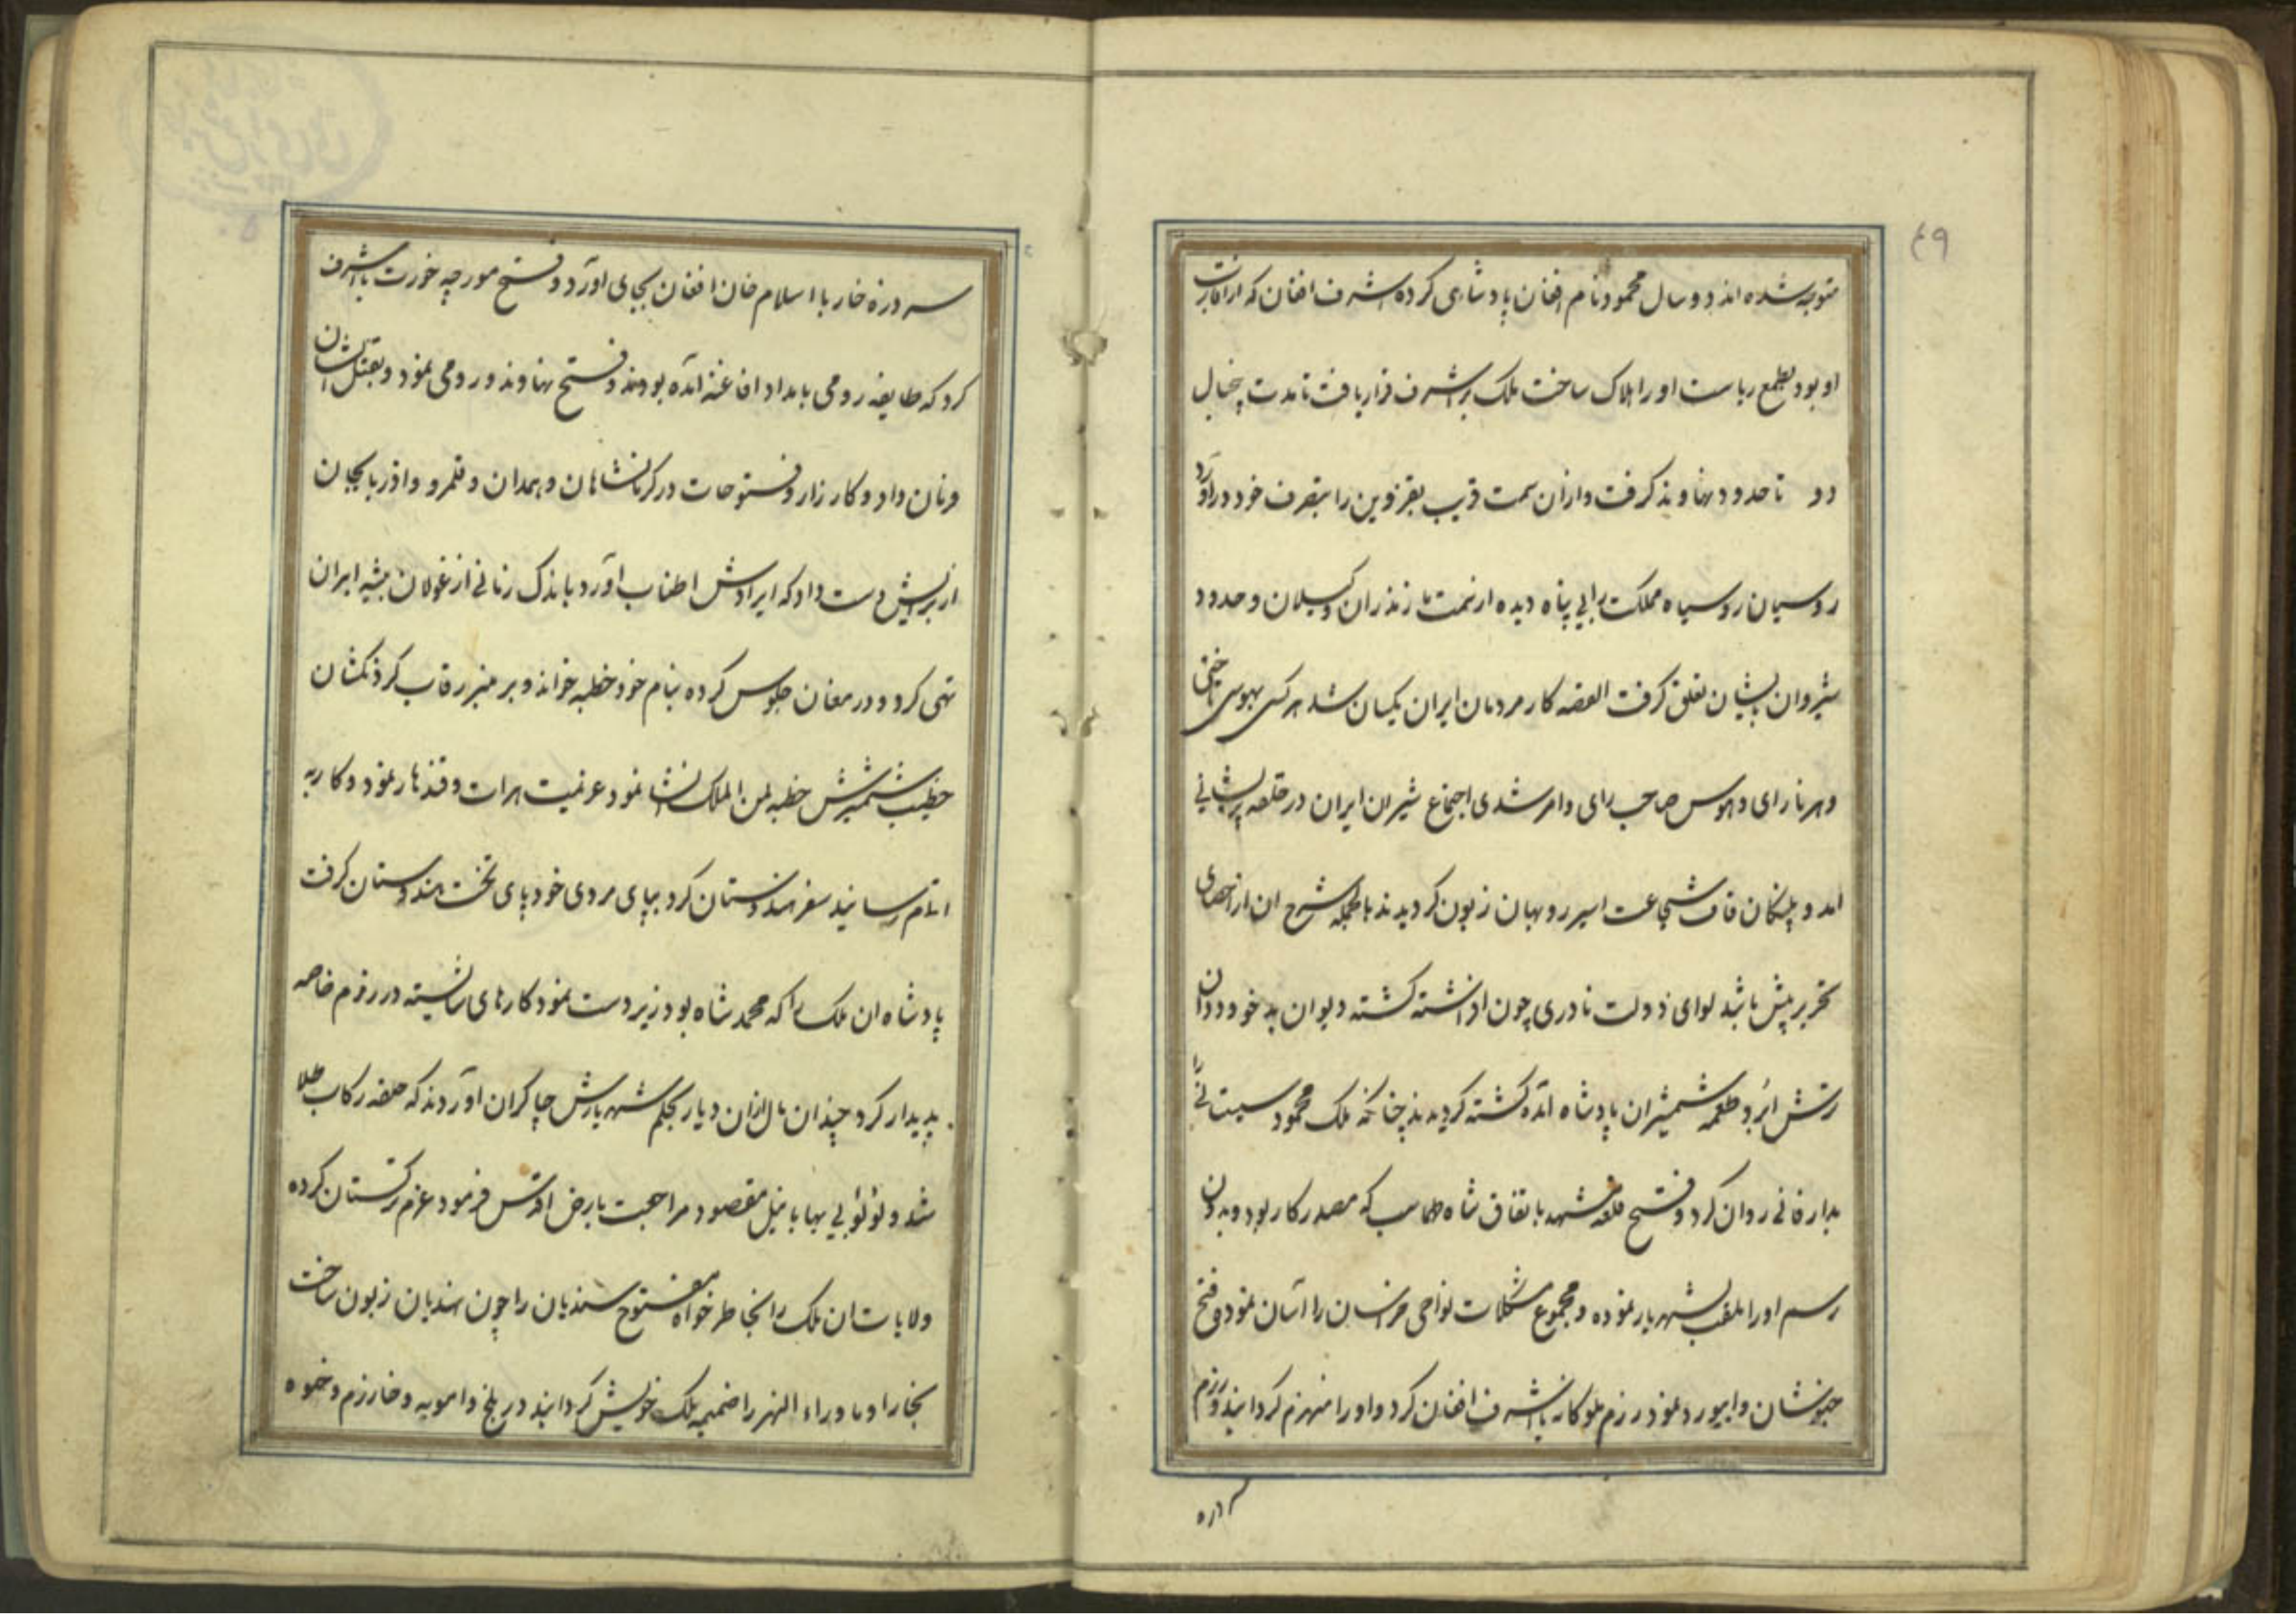 ۴۹
متوجه شده اند دو سال محمود نام افغان پادشاهی کرده اشرف افغان که از اقارب
او بود بطمع ریاست او را هلاک ساخت ملک بر اشرف قرار یافت تا مدت پنجسال
دو تا حدود نهاوند گرفت و از آن سمت قریب بقزوین را بتصرف خود در آورد
روسیان روسیاه مملکت را بی پناه دیده از سمت مازندران و گیلان و حدود
شیروان بایشان تعلق گرفت القصه کار مردمان ایران یکسان شد هر کسی بهوسی
و هر نارای و هوس صاحب رای و امر شدی اجتماع شیران ایران در حلقه پریشانی
امد و پلنگان قاف شجاعت اسیر روبهان زبون گردیدند بالجمله شرح ان از احصای
تحریر بیش باشد لوای دولت نادری چون افراشته گشته دیوان بد خو و ددان
زشتش ابرو طعمه شمشیر ان پادشاه آمده کشته گردیدند چنانکه ملک محمود سیستانی را
بدار فانی روان کرد و فتح قلعه مشهد باتفاق شاه طهماسب که مصدر کار بود و بدون
رسم او را ملقب بشهریار نموده و مجموع مشکلات نواحی خراسان را آسان نمود و فتح
خبوشان و ابیورد نمود رزم ملوکانه با اشرف افغان کرد و او را منهزم گردانید و رزم
سر دره
سر دره خار با اسلام خان افغان بجای اورد و فتح مورچه خورت با اشرف
کرد که طایفه رومی بامداد افاغنه آمده بودند و فتح نهاوند و رومی نمود و بقتل ایشان
فرمان داد و کار زار و فتوحات در کرمانشاهان و همدان و قلمرو و اذربایجان
از برایش دست داد که ایرادش اطناب اورد باندک زمانی از غولان بیشه ایران
تهی کرد و در مغان جلوس کرده بنام خود خطبه خواند و بر منبر رقاب گردنکشان
خطیب شمشیرش خطبه لمن الملک انشا نمود عزیمت هرات و قندهار نمود و کار به
اتمام رسانید سفر هندوستان کرد بپای مردی خود پای تخت هندوستان گرفت
پادشاه ان ملک را که محمد شاه بود زیر دست نمود کارهای شایسته در رزم خاصه
پدیدار کرد چندان مال از ان دیار بحکم شهریارش چاکران اوردند که حلقه رکاب طلا
شد و لؤلؤ بی بها با نیل مقصود مراجعت بارض اقدس فرمود عزم ترکستان کرده
ولایات ان ملک را بخاطر خواه مفتوح سندیان را چون هندیان زبون ساخت
بخارا و ماوراء النهر را ضمیمه ملک خویش گردانید در بلخ و امویه و خارزم و خیوه